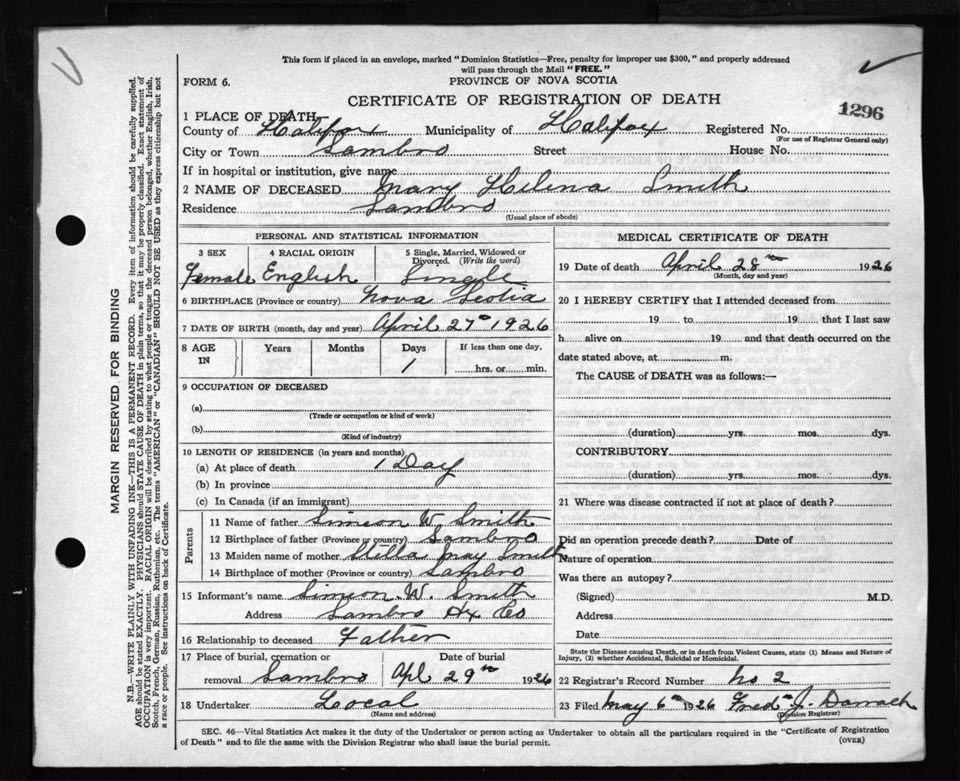 This form if placed in an envelope, marked "Dominion Statistics—Free, penalty for improper use $300," and properly addressed
will pass through the Mail "FREE."
FORM 6.
PROVINCE OF NOVA SCOTIA
CERTIFICATE OF REGISTRATION OF DEATH
1296
1 PLACE OF DEATH—
County of Halifax Municipality of Halifax Registered No.
(For use of Registrar General only)
City or Town Sambro Street House No.
If in hospital or institution, give name
2 NAME OF DECEASED Mary Helena Smith
Residence Sambro
(Usual place of abode)
PERSONAL AND STATISTICAL INFORMATION
3 SEX 4 RACIAL ORIGIN 5 Single, Married, Widowed or
Divorced. (Write the word)
Female English Single
6 BIRTHPLACE (Province or country) Nova Scotia
7 DATE OF BIRTH (month, day and year) April 27th 1926
8 AGE IN Years Months Days If less than one day,
1 hrs. or min.
9 OCCUPATION OF DECEASED
(a)
(Trade or occupation or kind of work)
(b)
(Kind of industry)
10 LENGTH OF RESIDENCE (in years and months)
(a) At place of death 1 Day
(b) In province
(c) In Canada (if an immigrant)
Parents
11 Name of father Simeon W. Smith
12 Birthplace of father (Province or country) Sambro
13 Maiden name of mother Stella May Smith
14 Birthplace of mother (Province or country) Sambro
15 Informant's name Simeon W. Smith
Address Sambro Hx Co
16 Relationship to deceased Father
17 Place of burial, cremation or Date of burial
removal Sambro Apl 29th 1926
18 Undertaker Local
(Name and address)
MEDICAL CERTIFICATE OF DEATH
19 Date of death April 28th 1926
(Month, day and year)
20 I HEREBY CERTIFY that I attended deceased from
19 to 19 that I last saw
h alive on 19 and that death occurred on the
date stated above, at m.
The CAUSE of DEATH was as follows:—
(duration) yrs. mos. dys.
CONTRIBUTORY
(duration) yrs. mos. dys.
21 Where was disease contracted if not at place of death?
Did an operation precede death? Date of
Nature of operation
Was there an autopsy?
(Signed) M.D.
Address
Date
State the Disease causing Death, or in death from Violent Causes, state (1) Means and Nature of
Injury, (2) whether Accidental, Suicidal or Homicidal.
22 Registrar's Record Number No 2
23 Filed May 6th 1926 Fred J. Darrach
(Division Registrar)
SEC. 46—Vital Statistics Act makes it the duty of the Undertaker or person acting as Undertaker to obtain all the particulars required in the "Certificate of Registration
of Death" and to file the same with the Division Registrar who shall issue the burial permit.
(OVER)
MARGIN RESERVED FOR BINDING
N.B.—WRITE PLAINLY WITH UNFADING INK—THIS IS A PERMANENT RECORD. Every item of information should be carefully supplied.
AGE should be stated EXACTLY. PHYSICIANS should STATE CAUSE OF DEATH in plain terms, so that it may be properly classified. Exact statement of
OCCUPATION is very important. RACIAL ORIGIN will be described by stating to what people or tongue the deceased person belonged, whether English, Irish,
Scotch, French, German, Russian, Ruthenian, etc. The terms "AMERICAN" or "CANADIAN" SHOULD NOT BE USED as they express citizenship but not
a race or people. See instructions on back of Certificate.